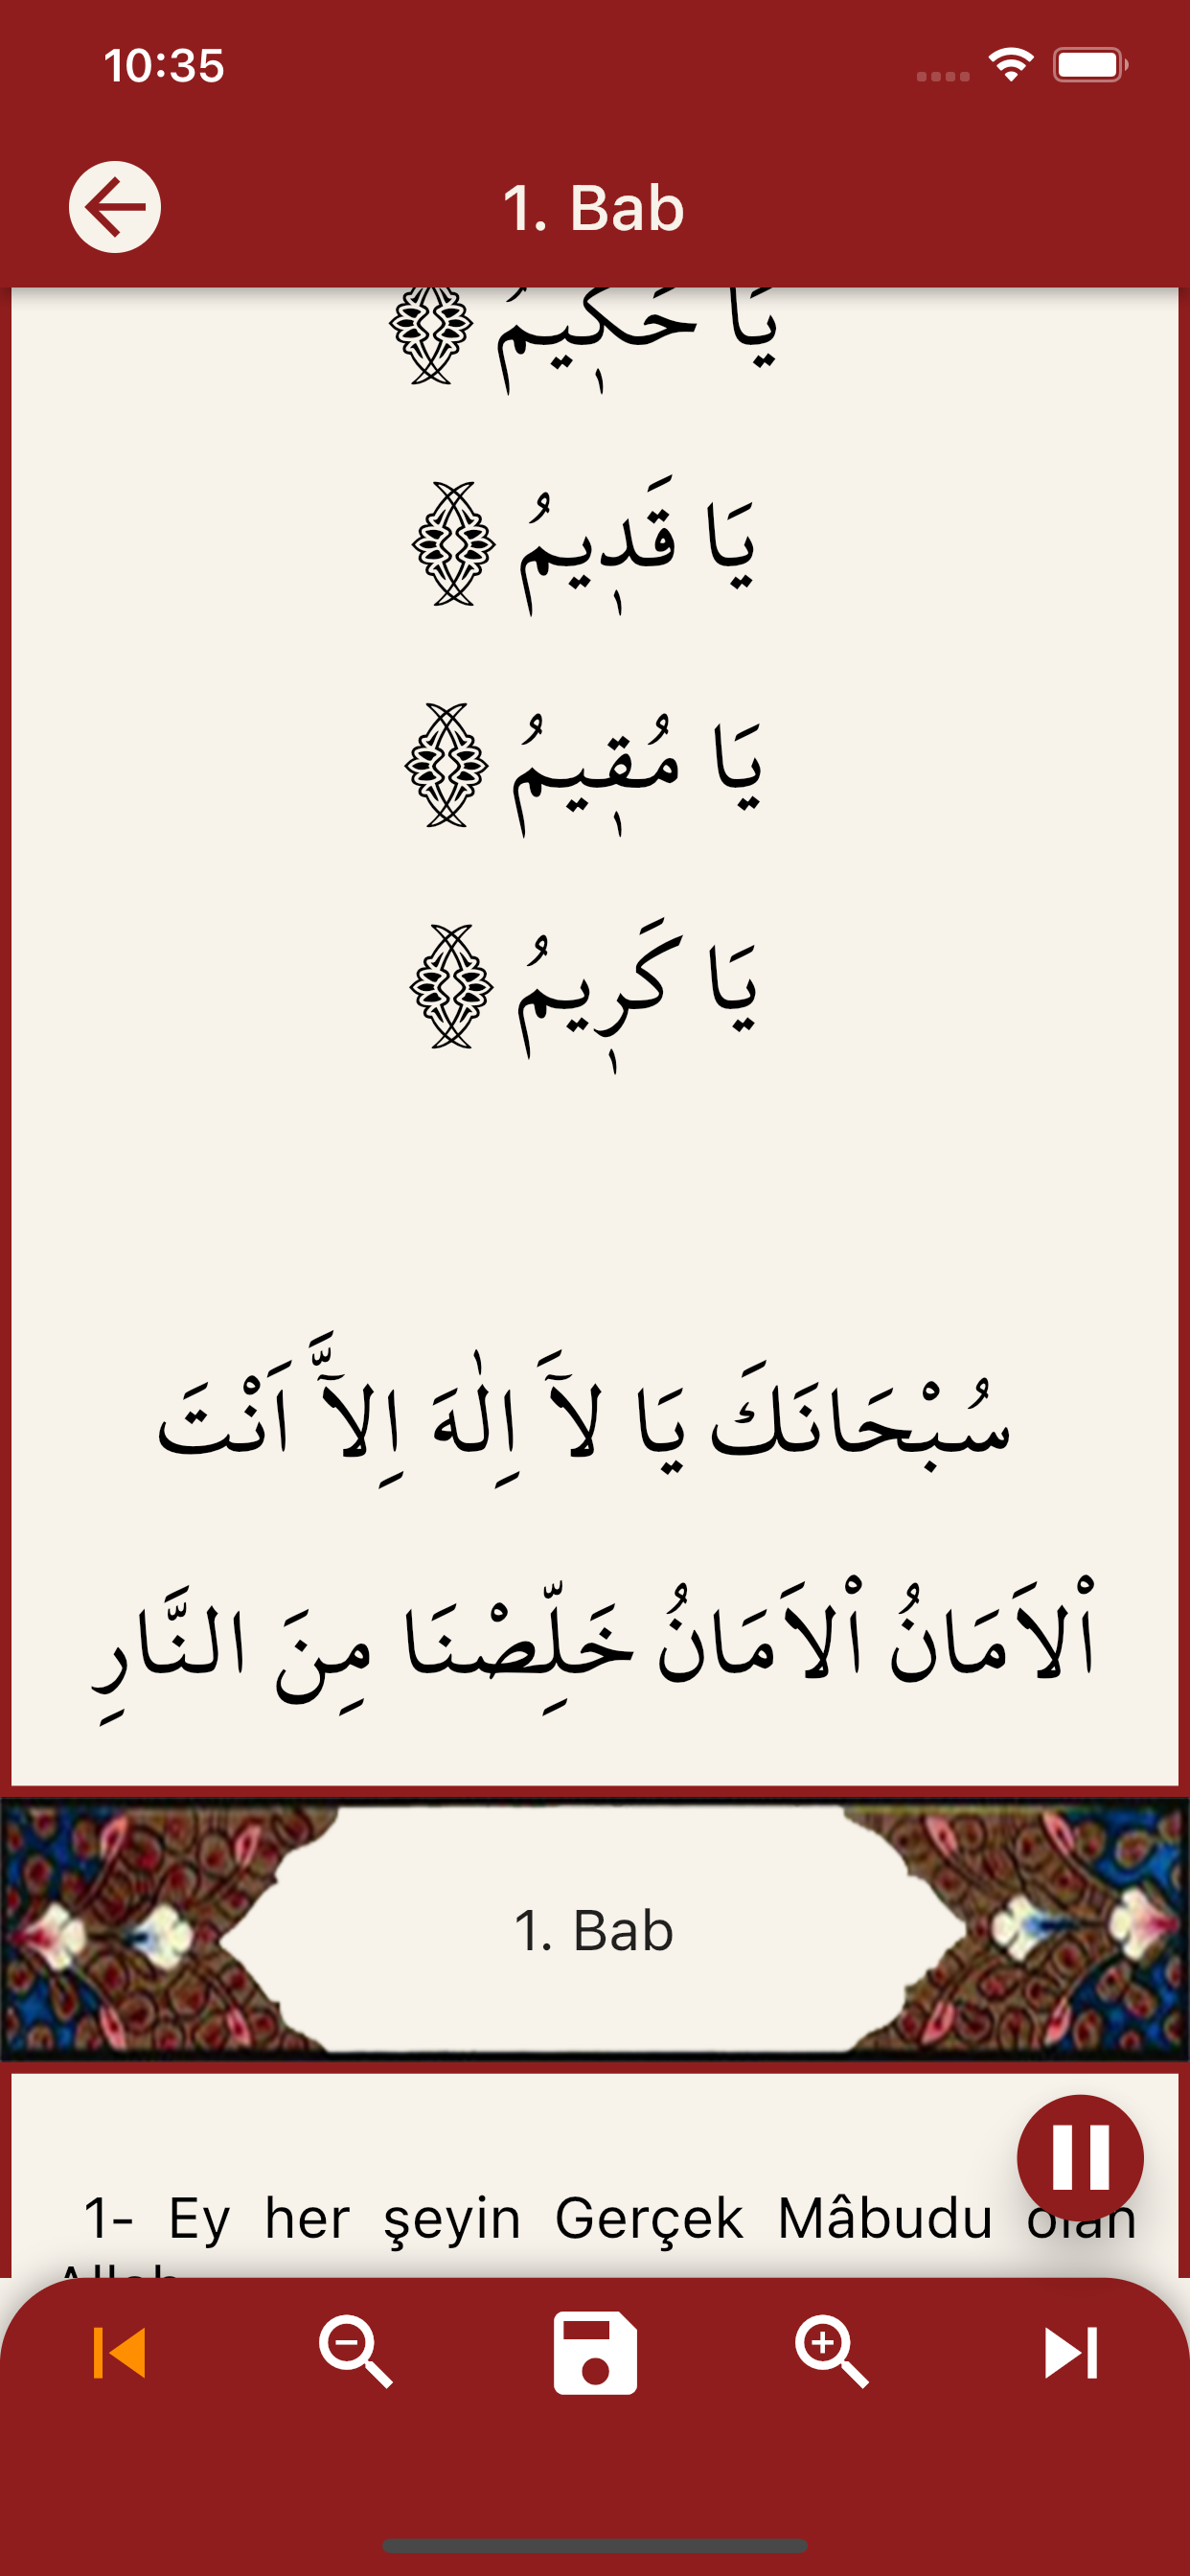 10:35
1. Bab
يَا حَكٖيمُ
يَا قَدٖيمُ
يَا مُقٖيمُ
يَا كَرٖيمُ
سُبْحَانَكَ يَا لَآ اِلٰهَ اِلَّآ اَنْتَ
اْلاَمَانُ اْلاَمَانُ خَلِّصْنَا مِنَ النَّارِ
1. Bab
1- Ey her şeyin Gerçek Mâbudu olan